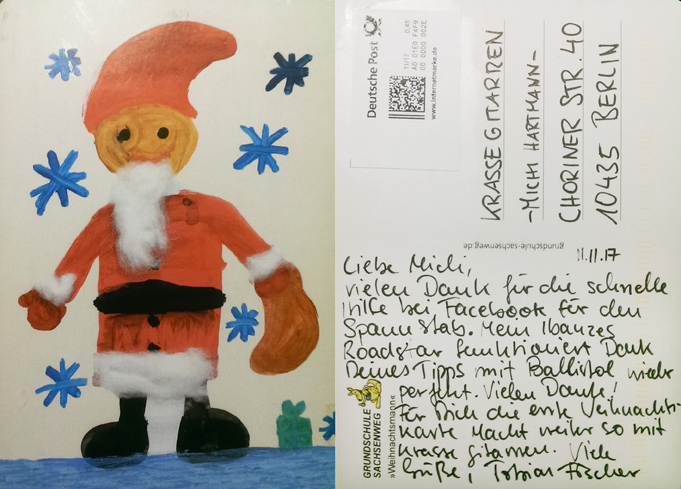 Deutsche Post
11.17 0,45
A0 01E0 F4F9
00 0000 002E
www.internetmarke.de
KRASSE GITARREN
-MICHI HARTMANN-
CHORINER STR. 40
10435 BERLIN
grundschule-sachsenweg.de
11.11.17
Liebe Michi,
vielen Dank für die schnelle
Hilfe bei Facebook für den
Spannstab. Mein Ibanez
Roadstar funktioniert Dank
Deines Tipps mit Ballistol wieder
perfekt. Vielen Dank!
Für Dich die erste Weihnachts-
karte. Macht weiter so mit
krasse gitarren. Viele
Grüße, Tobias Fischer
GRUNDSCHULE
SACHSENWEG
»Weihnachtsmann«